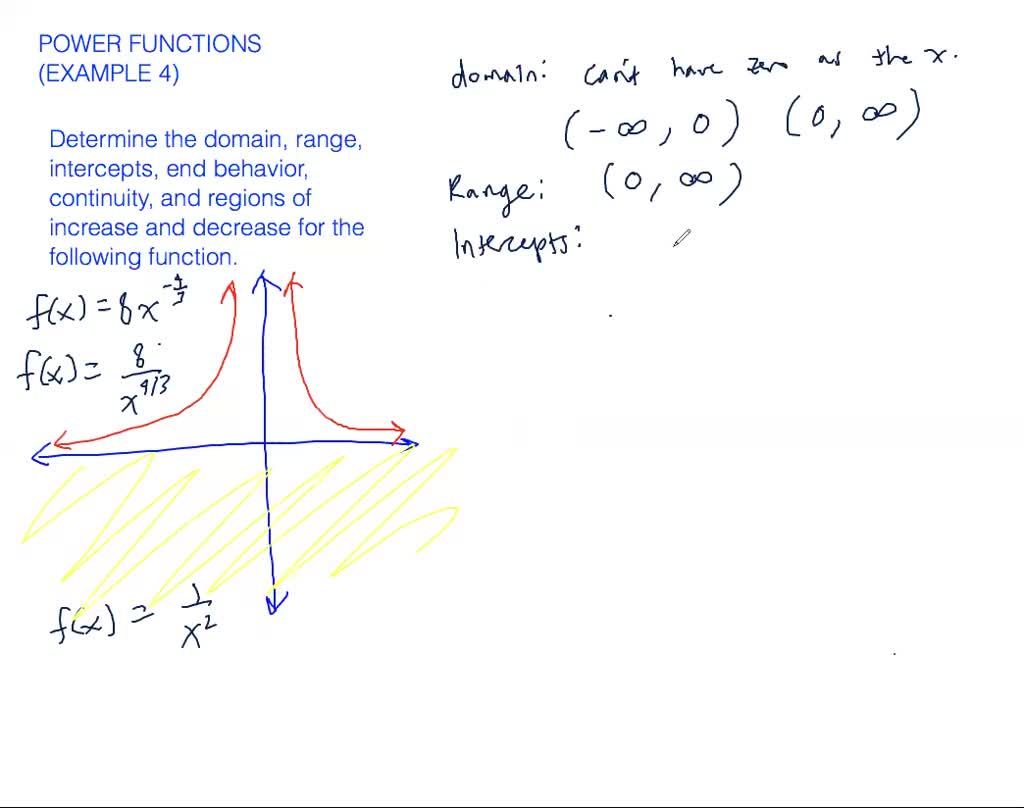 POWER FUNCTIONS
(EXAMPLE 4)
Determine the domain, range,
intercepts, end behavior,
continuity, and regions of
increase and decrease for the
following function.
f(x) = 8x^-4/3
f(x) = 8/x^4/3
f(x) = 1/x²
domain: can't have zero as the x.
(-∞, 0) (0, ∞)
Range: (0, ∞)
Intercepts: